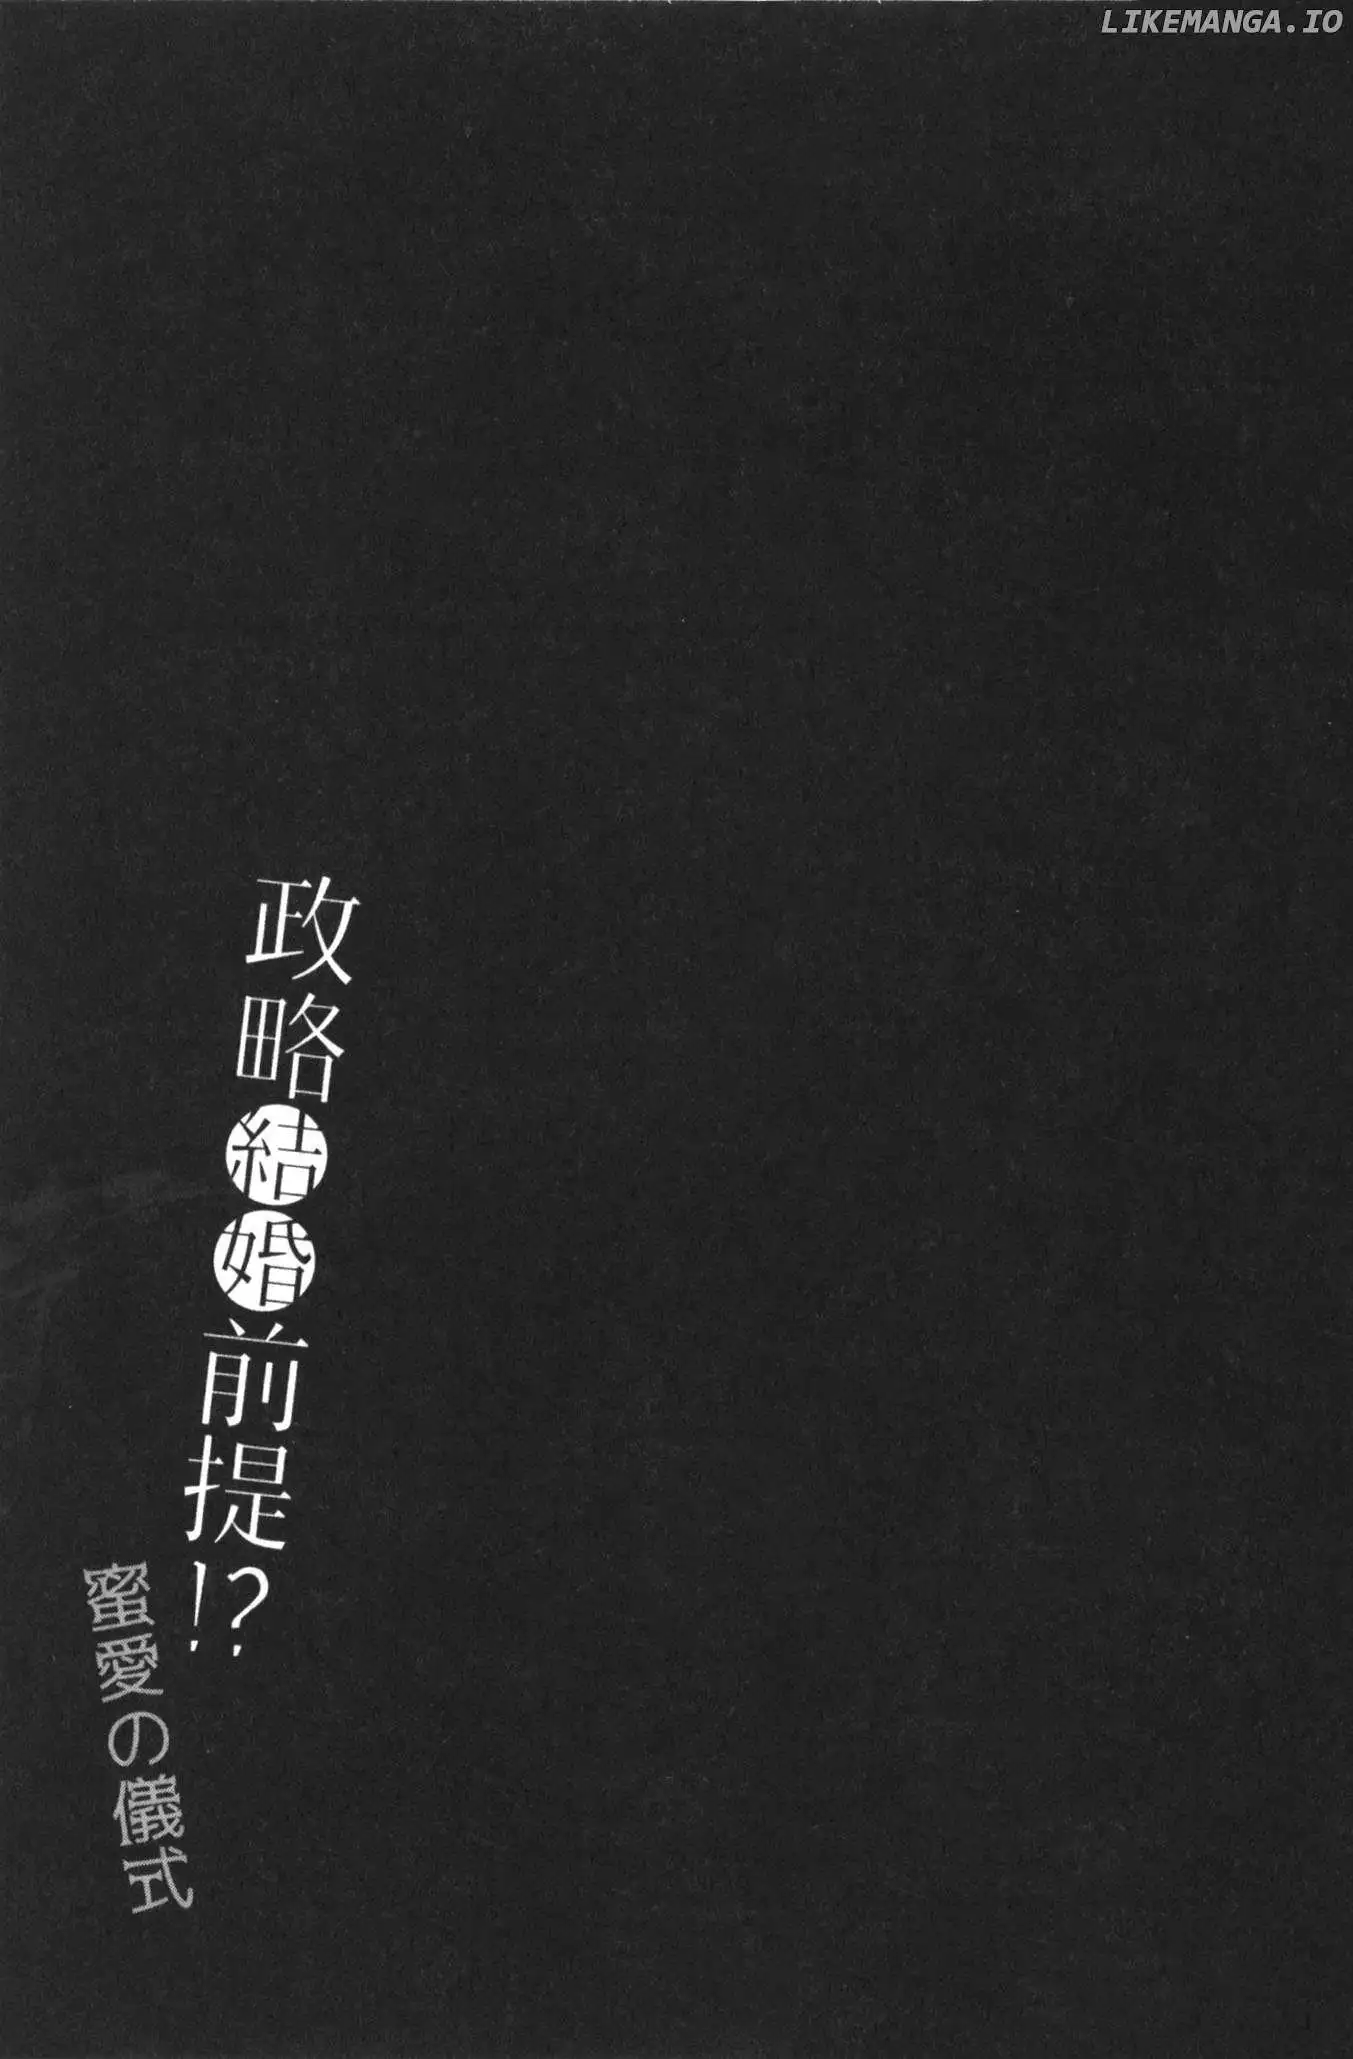 LIKEMANGA.IO
政略結婚前提!?
蜜愛の儀式